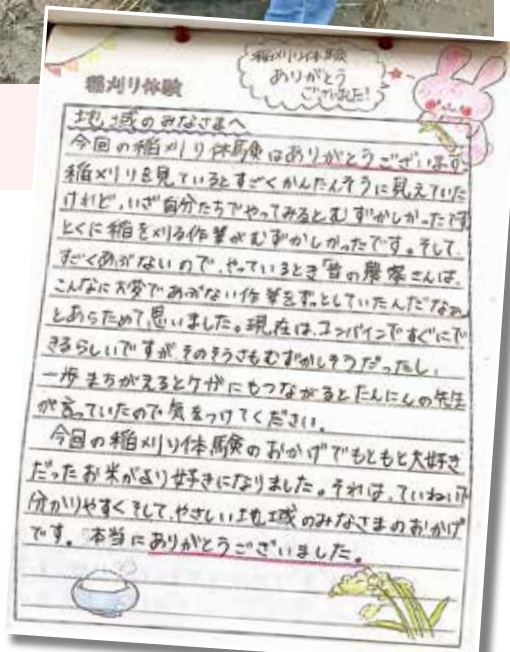 稲刈り体験
稲刈り体験
ありがとう
ございました!
地域のみなさまへ
今回の稲刈り体験はありがとうございます。
稲メリリを見ているとすごくかんたんそうに見えていた
けれど、いざ自分たちでやってみるとむずかしかったです
とくに稲を刈る作業がむずかしかったです。そして、
すごくあぶないので、やっているとき「昔の農家さんは、
こんなに大変であぶない作業をずっとしていたんだなぁ」
とあらためて思いました。現在は、コンバインですぐにで
きるらしいですが、そのそうさもむずかしそうだったし、
一歩まちがえるとケガにもつながるとたんにんの先生
が言っていたので気をつけてください。
今回の稲刈り体験のおかげでもともと大好き
だったお米がより好きになりました。それは、ていねいで
分かりやすくそして、やさしい地域のみなさまのおかげ
です。本当にありがとうございました。